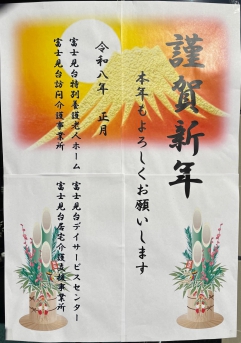 謹賀新年
本年もよろしくお願いします
令和八年 正月
富士見台特別養護老人ホーム
富士見台訪問介護事業所
富士見台デイサービスセンター
富士見台居宅介護支援事業所